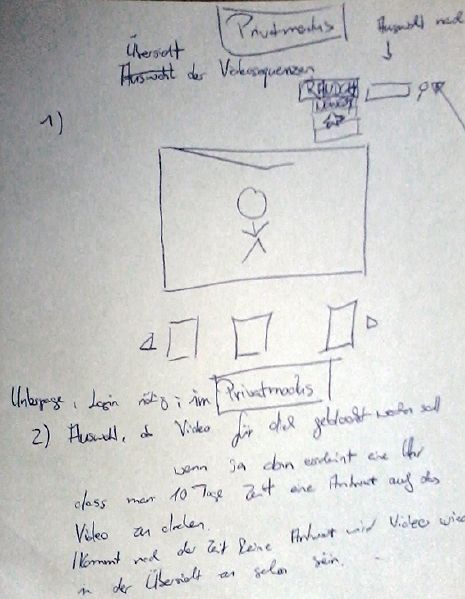 Privatmodus
Auswahl nach
Übersicht
Auswahl der Videosequenzen
1)
Unterpage, Login nötig; im Privatmodus
2) Auswahl, ob Video für dich geblockt werden soll
wenn ja dann erscheint eine Uhr
dass man 10 Tage Zeit eine Antwort auf das
Video zu
Kommt nach der Zeit keine Antwort wird Video wieder
in der Übersicht zu sehen sein.